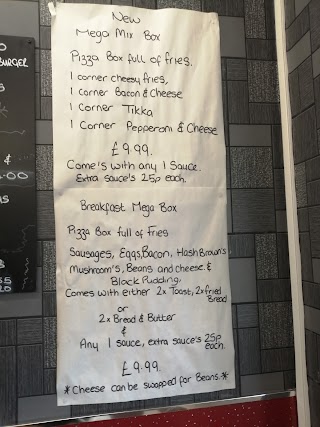 New
Mega Mix Box
Pizza Box full of fries.
1 corner cheesy fries,
1 corner Bacon & Cheese
1 Corner Tikka
1 Corner Pepperoni & Cheese
£9.99.
Come's with any 1 Sauce.
Extra sauce's 25p each.
Breakfast Mega Box
Pizza Box full of fries
Sausages, Eggs, Bacon, Hash Brown's
Mushroom's, Beans and cheese &
Black Pudding,
Comes with either 2x Toast, 2x fried
Bread
or
2x Bread & Butter
&
Any 1 sauce, extra sauce's 25p
each.
£9.99.
*Cheese can be swapped for Beans.*
BURGER